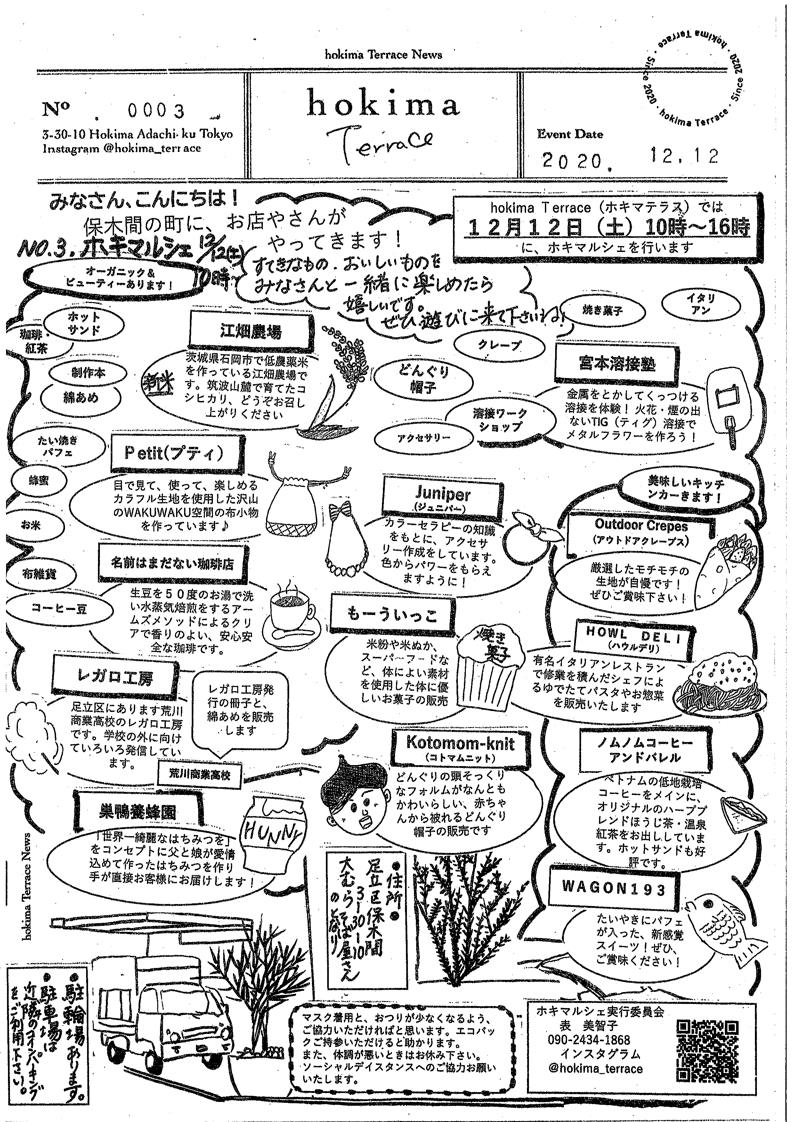 hokima Terrace News
Nº . 0003
3-30-10 Hokima Adachi-ku Tokyo
Instagram @hokima_terrace
hokima
Terrace
Event Date
2020. 12.12
hokima Terrace · Since 2020 · hokima Terrace · Since 2020 ·
みなさん、こんにちは！
保木間の町に、お店やさんが
やってきます！
NO.3. ホキマルシェ 12/12(土)
10時~
すてきなもの・おいしいものを
みなさんと一緒に楽しめたら
嬉しいです。
ぜひ遊びに来て下さいね!
hokima Terrace（ホキマテラス）では
１２月１２日（土）10時～16時
に、ホキマルシェを行います
オーガニック＆
ビューティーあります！
ホット
サンド
珈琲・
紅茶
制作本
綿あめ
たい焼き
パフェ
蜂蜜
お米
布雑貨
コーヒー豆
江畑農場
新米
茨城県石岡市で低農薬米
を作っている江畑農場で
す。筑波山麓で育てたコ
シヒカリ、どうぞお召し
上がりください
どんぐり
帽子
クレープ
焼き菓子
イタリ
アン
溶接ワーク
ショップ
アクセサリー
宮本溶接塾
金属をとかしてくっつける
溶接を体験！火花・煙の出
ないTIG（ティグ）溶接で
メタルフラワーを作ろう！
Petit(プティ)
目で見て、使って、楽しめる
カラフル生地を使用した沢山
のWAKUWAKU空間の布小物
を作っています♪
Juniper
（ジュニパー）
カラーセラピーの知識
をもとに、アクセサ
リー作成をしています。
色からパワーをもらえ
ますように！
美味しいキッチ
ンカーきます！
Outdoor Crepes
（アウトドアクレープス）
厳選したモチモチの
生地が自慢です！
ぜひご賞味下さい！
名前はまだない珈琲店
生豆を５０度のお湯で洗
い水蒸気焙煎をするアー
ムズメソッドによるクリ
アで香りのよい、安心安
全な珈琲です。
もーういっこ
米粉や米ぬか、
スーパーフードな
ど、体によい素材
を使用した体に優
しいお菓子の販売
焼き
菓子
HOWL DELI
（ハウルデリ）
有名イタリアンレストラン
で修業を積んだシェフによ
るゆでたてパスタやお惣菜
を販売いたします
レガロ工房
足立区にあります荒川
商業高校のレガロ工房
です。学校の外に向け
ていろいろ発信してい
ます。
レガロ工房発
行の冊子と、
綿あめを販売
します
荒川商業高校
Kotomom-knit
（コトマムニット）
どんぐりの頭そっくり
なフォルムがなんとも
かわいらしい、赤ちゃ
んから被れるどんぐり
帽子の販売です
ノムノムコーヒー
アンドバレル
ベトナムの低地栽培
コーヒーをメインに、
オリジナルのハーブブ
レンドほうじ茶・温泉
紅茶をお出ししていま
す。ホットサンドも好
評です。
巣鴨養蜂園
「世界一綺麗なはちみつを」
をコンセプトに父と娘が愛情
込めて作ったはちみつを作り
手が直接お客様にお届けします！
HUNNY
WAGON193
たいやきにパフェ
が入った、新感覚
スイーツ！ぜひ、
ご賞味ください！
hokima Terrace News
●住所●
足立区保木間
3-30-10
大むらそば屋さん
のとなり
●駐輪場あります。
●駐車場は
近隣のコインパーキング
をご利用下さい。
マスク着用と、おつりが少なくなるよう、
ご協力いただければと思います。エコバッ
クご持参いただけると助かります。
また、体調が悪いときはお休み下さい。
ソーシャルデイスタンスへのご協力お願い
いたします。
ホキマルシェ実行委員会
表 美智子
090-2434-1868
インスタグラム
@hokima_terrace